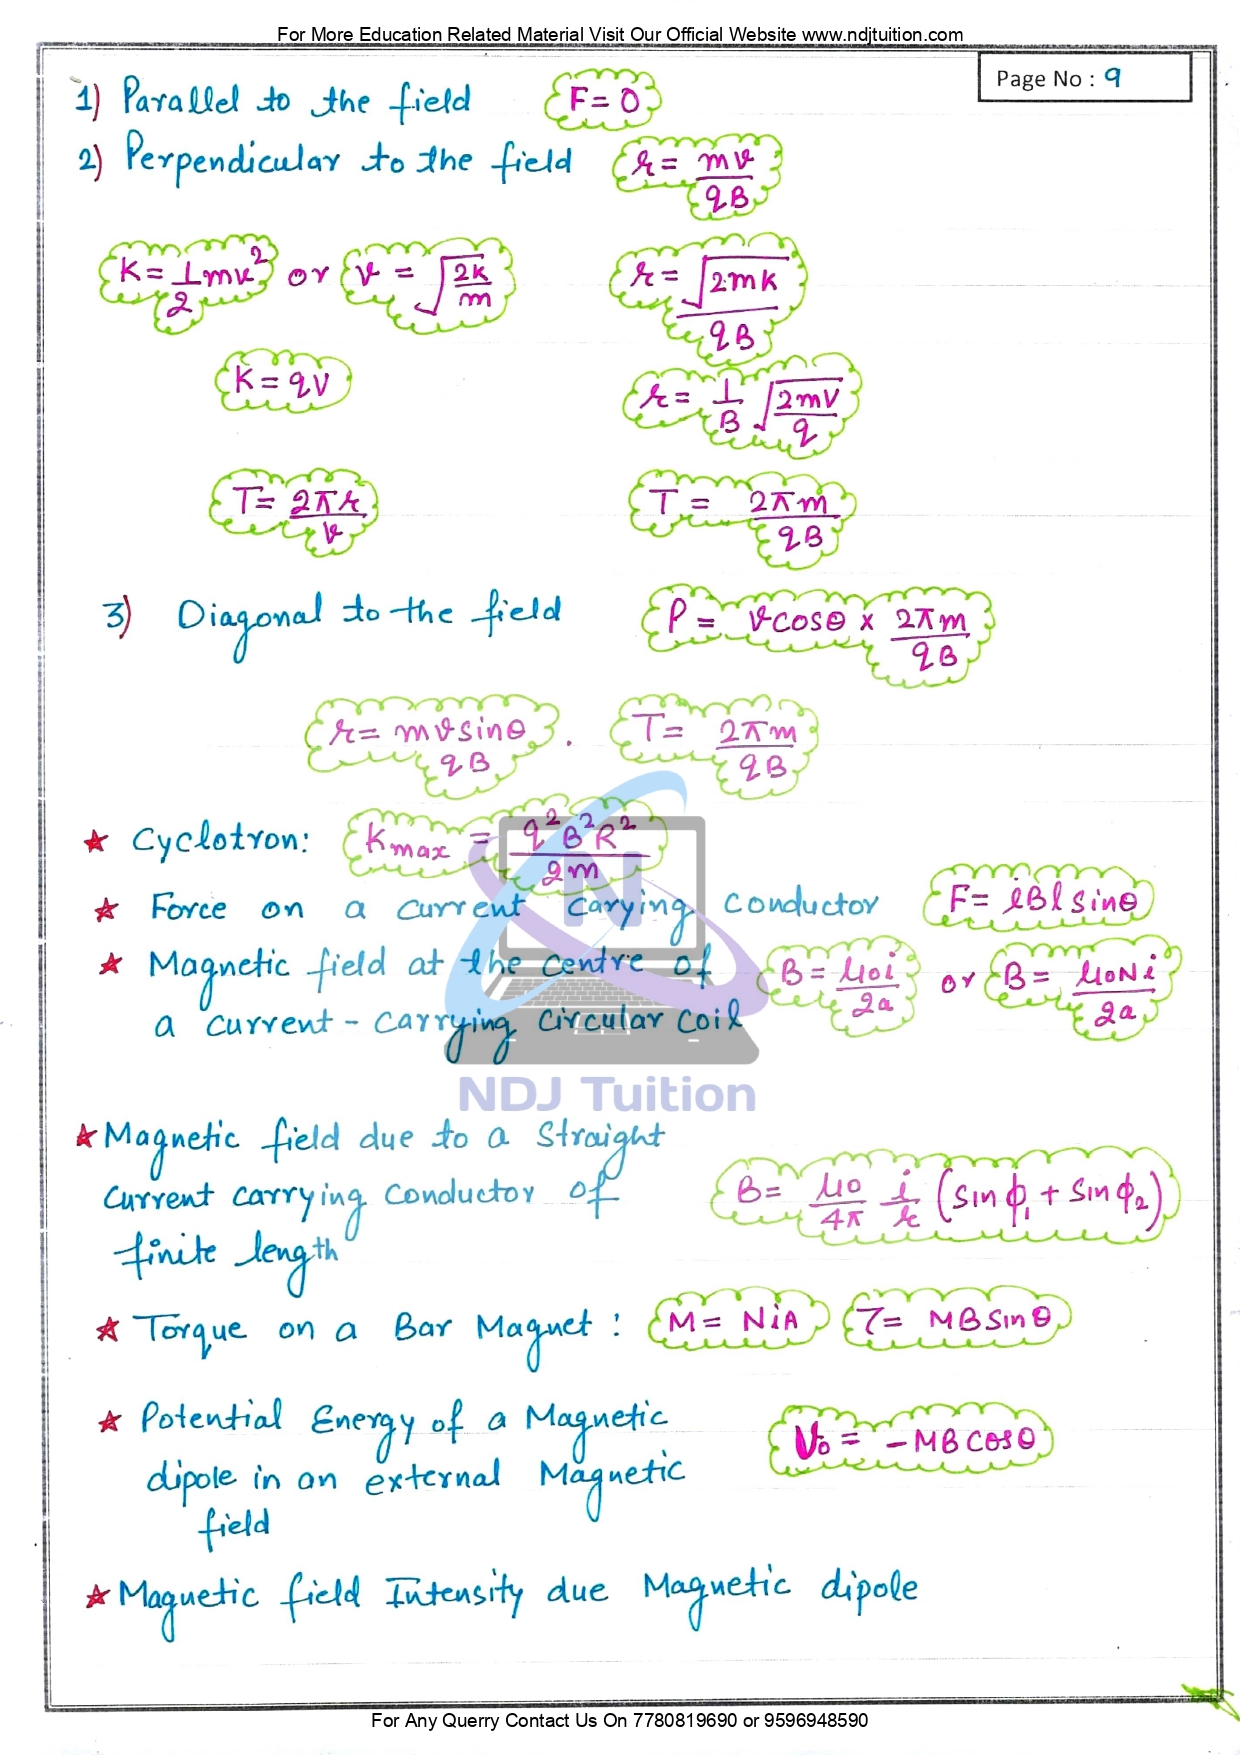 For More Education Related Material Visit Our Official Website www.ndjtuition.com
Page No : 9
1) Parallel to the field F = 0
2) Perpendicular to the field r = mv/qB
K = 1/2 mv² or v = √(2k/m) r = √(2mk)/qB
K = qV r = 1/B √(2mV/q)
T = 2πr/v T = 2πm/qB
3) Diagonal to the field P = vcosθ × 2πm/qB
r = mvsinθ/qB . T = 2πm/qB
★ Cyclotron: Kmax = q²B²R²/2m
★ Force on a current carying conductor F = iBl sinθ
★ Magnetic field at the centre of B = μ0i/2a or B = μ0Ni/2a
a current - carrying circular coil
NDJ Tuition
★ Magnetic field due to a straight
current carrying conductor of B = μ0/4π i/r (sinϕ1 + sinϕ2)
finite length
★ Torque on a Bar Magnet : M = NiA τ = MBSinθ
★ Potential Energy of a Magnetic U0 = -MBcosθ
dipole in an external Magnetic
field
★ Magnetic field Intensity due Magnetic dipole
For Any Querry Contact Us On 7780819690 or 9596948590